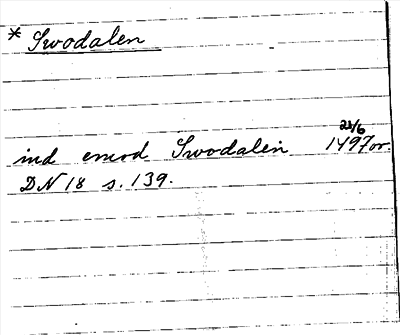 * Swodalen
22/6
ind emod Swodalen 1497 or.
DN 18 s. 139.